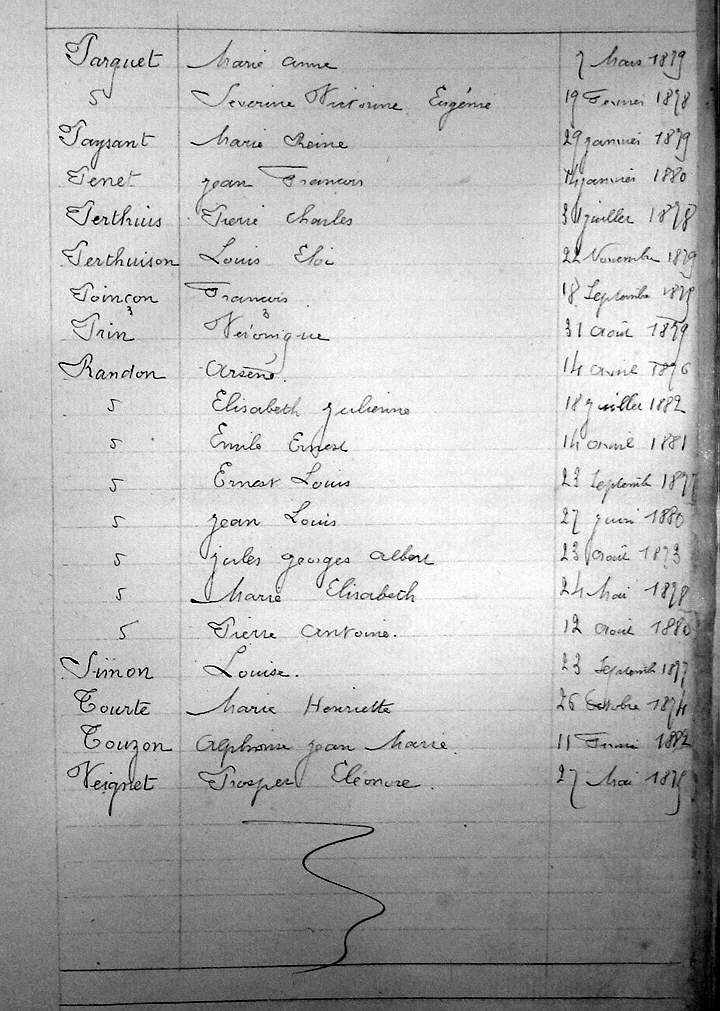 Parquet Marie anne 7 Mars 1879
5 Severine Victorine Eugénie 19 Fevrier 1878
Paysant Marie Reine 29 janvier 1879
Penet jean Francois 14 janvier 1880
Perthuis Pierre Charles 30 juillet 1878
Perthuison Louis Eloi 22 Novembre 1879
Poinçon Francois 18 Septembre 1879
Prin Véronique 31 Aout 1879
Randon Arsène. 14 avril 1876
5 Elisabeth julienne 18 juillet 1882
5 Emile Ernest 14 avril 1881
5 Ernest Louis 23 Septembre 1877
5 jean Louis 27 juin 1880
5 jules georges albert 23 Aout 1873
5 Marie Elisabeth 24 Mai 1878
5 Pierre antoine. 12 Aout 1880
Simon Louise. 23 Septembre 1877
Tourte Marie Henriette 26 Octobre 1874
Touzon Alphonse jean Marie 11 Fevrier 1882
Veignet Prosper Eléonore. 27 Mai 1879